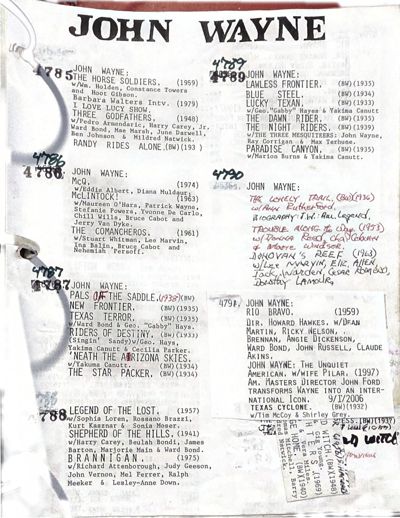 JOHN WAYNE
4785
JOHN WAYNE:
THE HORSE SOLDIERS. (1959)
w/Wm. Holden, Constance Towers
and Hoot Gibson.
Barbara Walters Intv. (1979)
I LOVE LUCY SHOW.
THREE GODFATHERS. (1948)
w/Pedro Armendariz, Harry Carey, Jr.
Ward Bond, Mae Marsh, June Darwell,
Ben Johnson & Mildred Natwick.
RANDY RIDES ALONE.(BW)(193 )
4786
4786
JOHN WAYNE:
McQ. (1974)
w/Eddie Albert, Diana Muldaur.
McLINTOCK! (1963)
w/Maureen O'Hara, Patrick Wayne,
Stefanie Powers, Yvonne De Carlo,
Chill Wills, Bruce Cabot and
Jerry Van Dyke.
THE COMANCHEROS. (1961)
w/Stuart Whitman, Lee Marvin,
Ina Balin, Bruce Cabot and
Nehemiah Persoff.
4787
4787
JOHN WAYNE:
PALS OF THE SADDLE. (1938)(BW)
NEW FRONTIER. (BW)(1935)
TEXAS TERROR. (BW)(1935)
w/Ward Bond & Geo. "Gabby" Hays.
RIDERS OF DESTINY. (BW)(1933)
(Singin' Sandy)w/Geo. Hays,
Yakima Canutt & Cecilia Parker.
'NEATH THE ARIZONA SKIES.
w/Yakuma Canutt. (BW)(1934)
THE STAR PACKER. (BW)(1934)
788
LEGEND OF THE LOST. (1957)
w/Sophia Loren, Rossano Brazzi,
Kurt Kasznar & Sonia Moser.
SHEPHERD OF THE HILLS. (1941)
w/Harry Carey, Beulah Bondi, James
Barton, Marjorie Main & Ward Bond.
BRANNIGAN. (1975)
w/Richard Attenborough, Judy Geeson,
John Vernon, Mel Ferrer, Ralph
Meeker & Lesley-Anne Down.
4789
4789
JOHN WAYNE:
LAWLESS FRONTIER. (BW)(1935)
BLUE STEEL. (BW)(1934)
LUCKY TEXAN. (BW)(1933)
w/Geo."Gabby" Hayes & Yakima Canutt
THE DAWN RIDER. (BW)(1935)
THE NIGHT RIDERS. (BW)(1939)
w/THE THREE MESQUITEERS: John Wayne,
Ray Corrigan & Max Terhune.
PARADISE CANYON. (BW)(1935)
w/Marion Burns & Yakima Canutt.
4790
JOHN WAYNE:
THE LONELY TRAIL. (BW)(1936)
w/Ann Rutherford.
BIOGRAPHY: J.W.: Am. Legend.
TROUBLE ALONG the Way (1953)
w/Donna Reed, Chas Coburn
& Marie Windsor.
DONOVAN'S REEF (1963)
w/Lee MARVIN, Eliz. ALLEN,
Jack WARDEN, Cesar ROMERO,
Dorothy LAMOUR.
4791
JOHN WAYNE:
RIO BRAVO. (1959)
DIR. HOWARD HAWKES. W/DEAN
MARTIN, RICKY NELSON,
BRENNAN, ANGIE DICKENSON,
WARD BOND, JOHN RUSSELL, CLAUDE
AKINS.
JOHN WAYNE: THE UNQUIET
AMERICAN. W/WIFE PILAR. (1997)
AM. MASTERS DIRECTOR JOHN FORD
TRANSFORMS WAYNE INTO AN INTER-
NATIONAL ICON. 9/1/2006
TEXAS CYCLONE. (BW)(1932)
w/Tim McCoy & Shirley Grey.